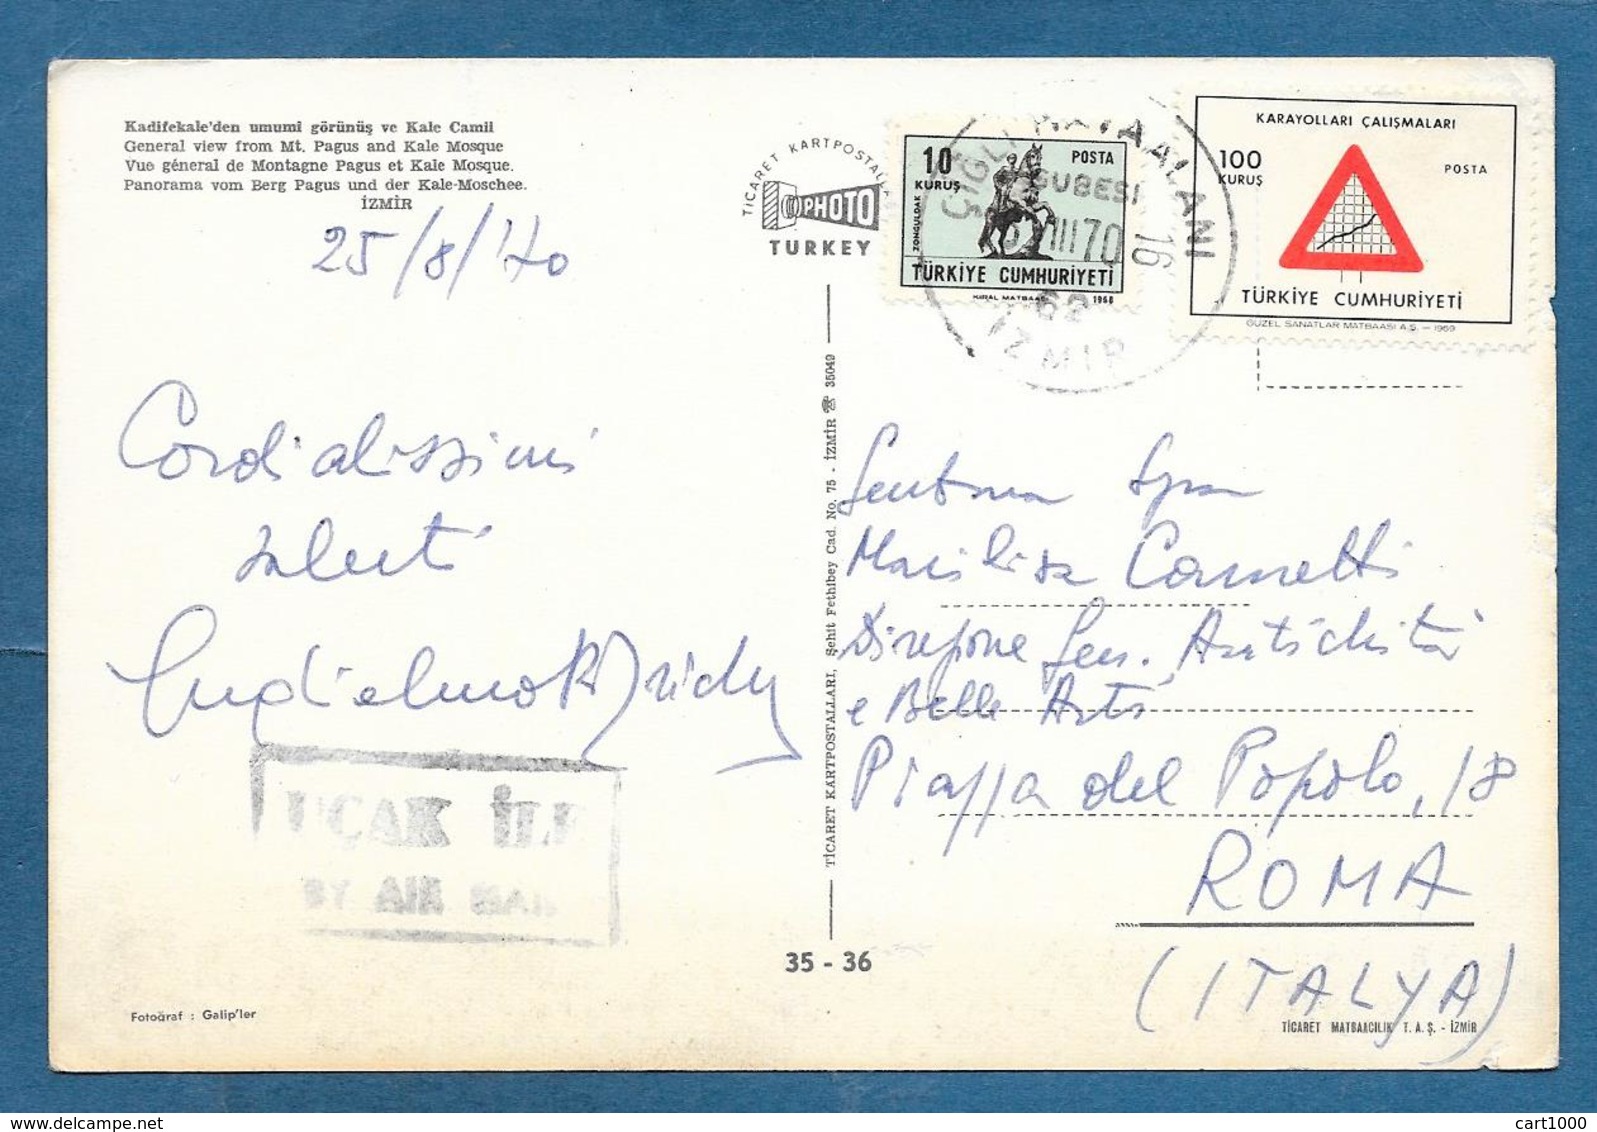 Kadifekale'den umumî görünüş ve Kale Camii
General view from Mt. Pagus and Kale Mosque
Vue géneral de Montagne Pagus et Kale Mosque.
Panorama vom Berg Pagus und der Kale-Moschee.
İZMİR
25/8/70
Cordialissimi
saluti
Guglielmo
UÇAK İLE
BY AIR MAIL
Fotoğraf : Galip'ler
TİCARET KARTPOSTALLARI
PHOTO
TURKEY
TİCARET KARTPOSTALLARI, Şehit Fethibey Cad. No. 75 - İZMİR ☎ 35049
35 - 36
10
KURUŞ
POSTA
ZONGULDAK
TÜRKİYE CUMHURİYETİ
KIRAL MATBAASI 1968
ÇİĞLİ HAVAALANI
ŞUBESİ
III 70
16
62
İZMİR
KARAYOLLARI ÇALIŞMALARI
100
KURUŞ
POSTA
TÜRKİYE CUMHURİYETİ
GÜZEL SANATLAR MATBAASI A.Ş. — 1969
Gent.ma Sig.ra
Marilisa
Direzione Gen. Antichità
e Belle Arti
Piazza del Popolo, 18
ROMA
(ITALYA)
TİCARET MATBAACILIK T. A. Ş. - İZMİR
cart1000